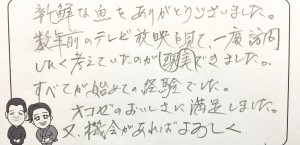 新鮮な魚をありがとうございました。
数年前のテレビ放映を見て、一度訪問
したく考えていたのが現実できました。
すべてが始めての経験でした。
オコゼのおいしさに満足しました。
又、機会があればよろしく